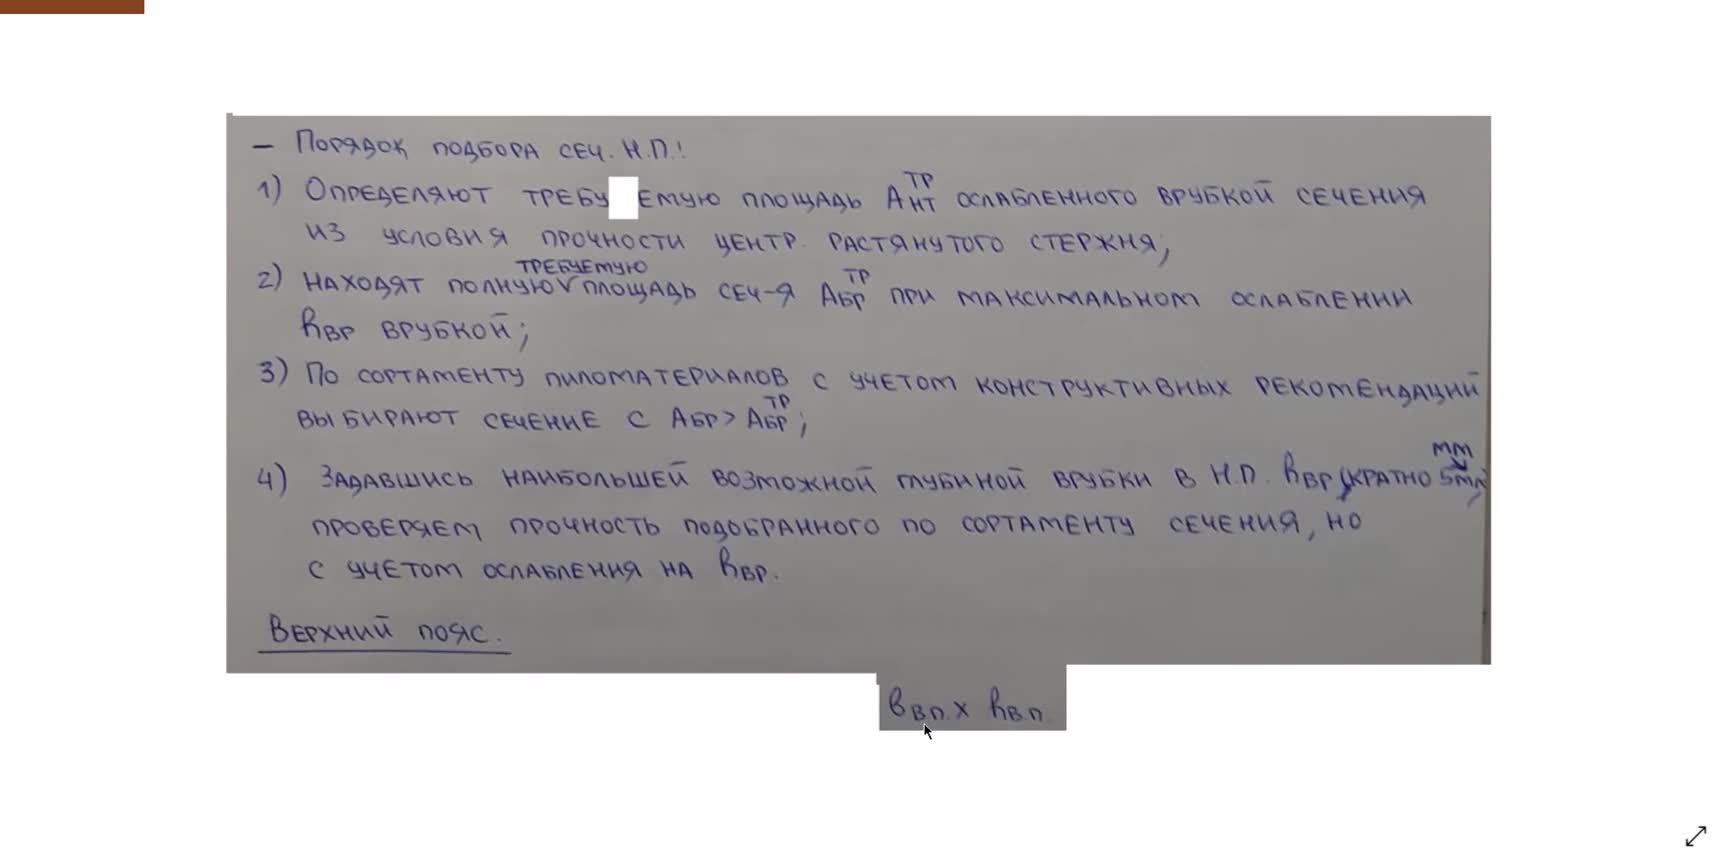 – Порядок подбора сеч. Н.П.:
1) Определяют требу емую площадь Aнт^тр ослабленного врубкой сечения
из условия прочности центр. растянутого стержня;
2) Находят полную требуемую площадь сеч-я Aбр^тр при максимальном ослаблении
hвр врубкой;
3) По сортаменту пиломатериалов с учетом конструктивных рекомендаций
выбирают сечение с Aбр > Aбр^тр;
4) Задавшись наибольшей возможной глубиной врубки в Н.П. hвр (кратно 5мм мм),
проверяем прочность подобранного по сортаменту сечения, но
с учетом ослабления на hвр.
Верхний пояс.
bв.п. x hв.п.